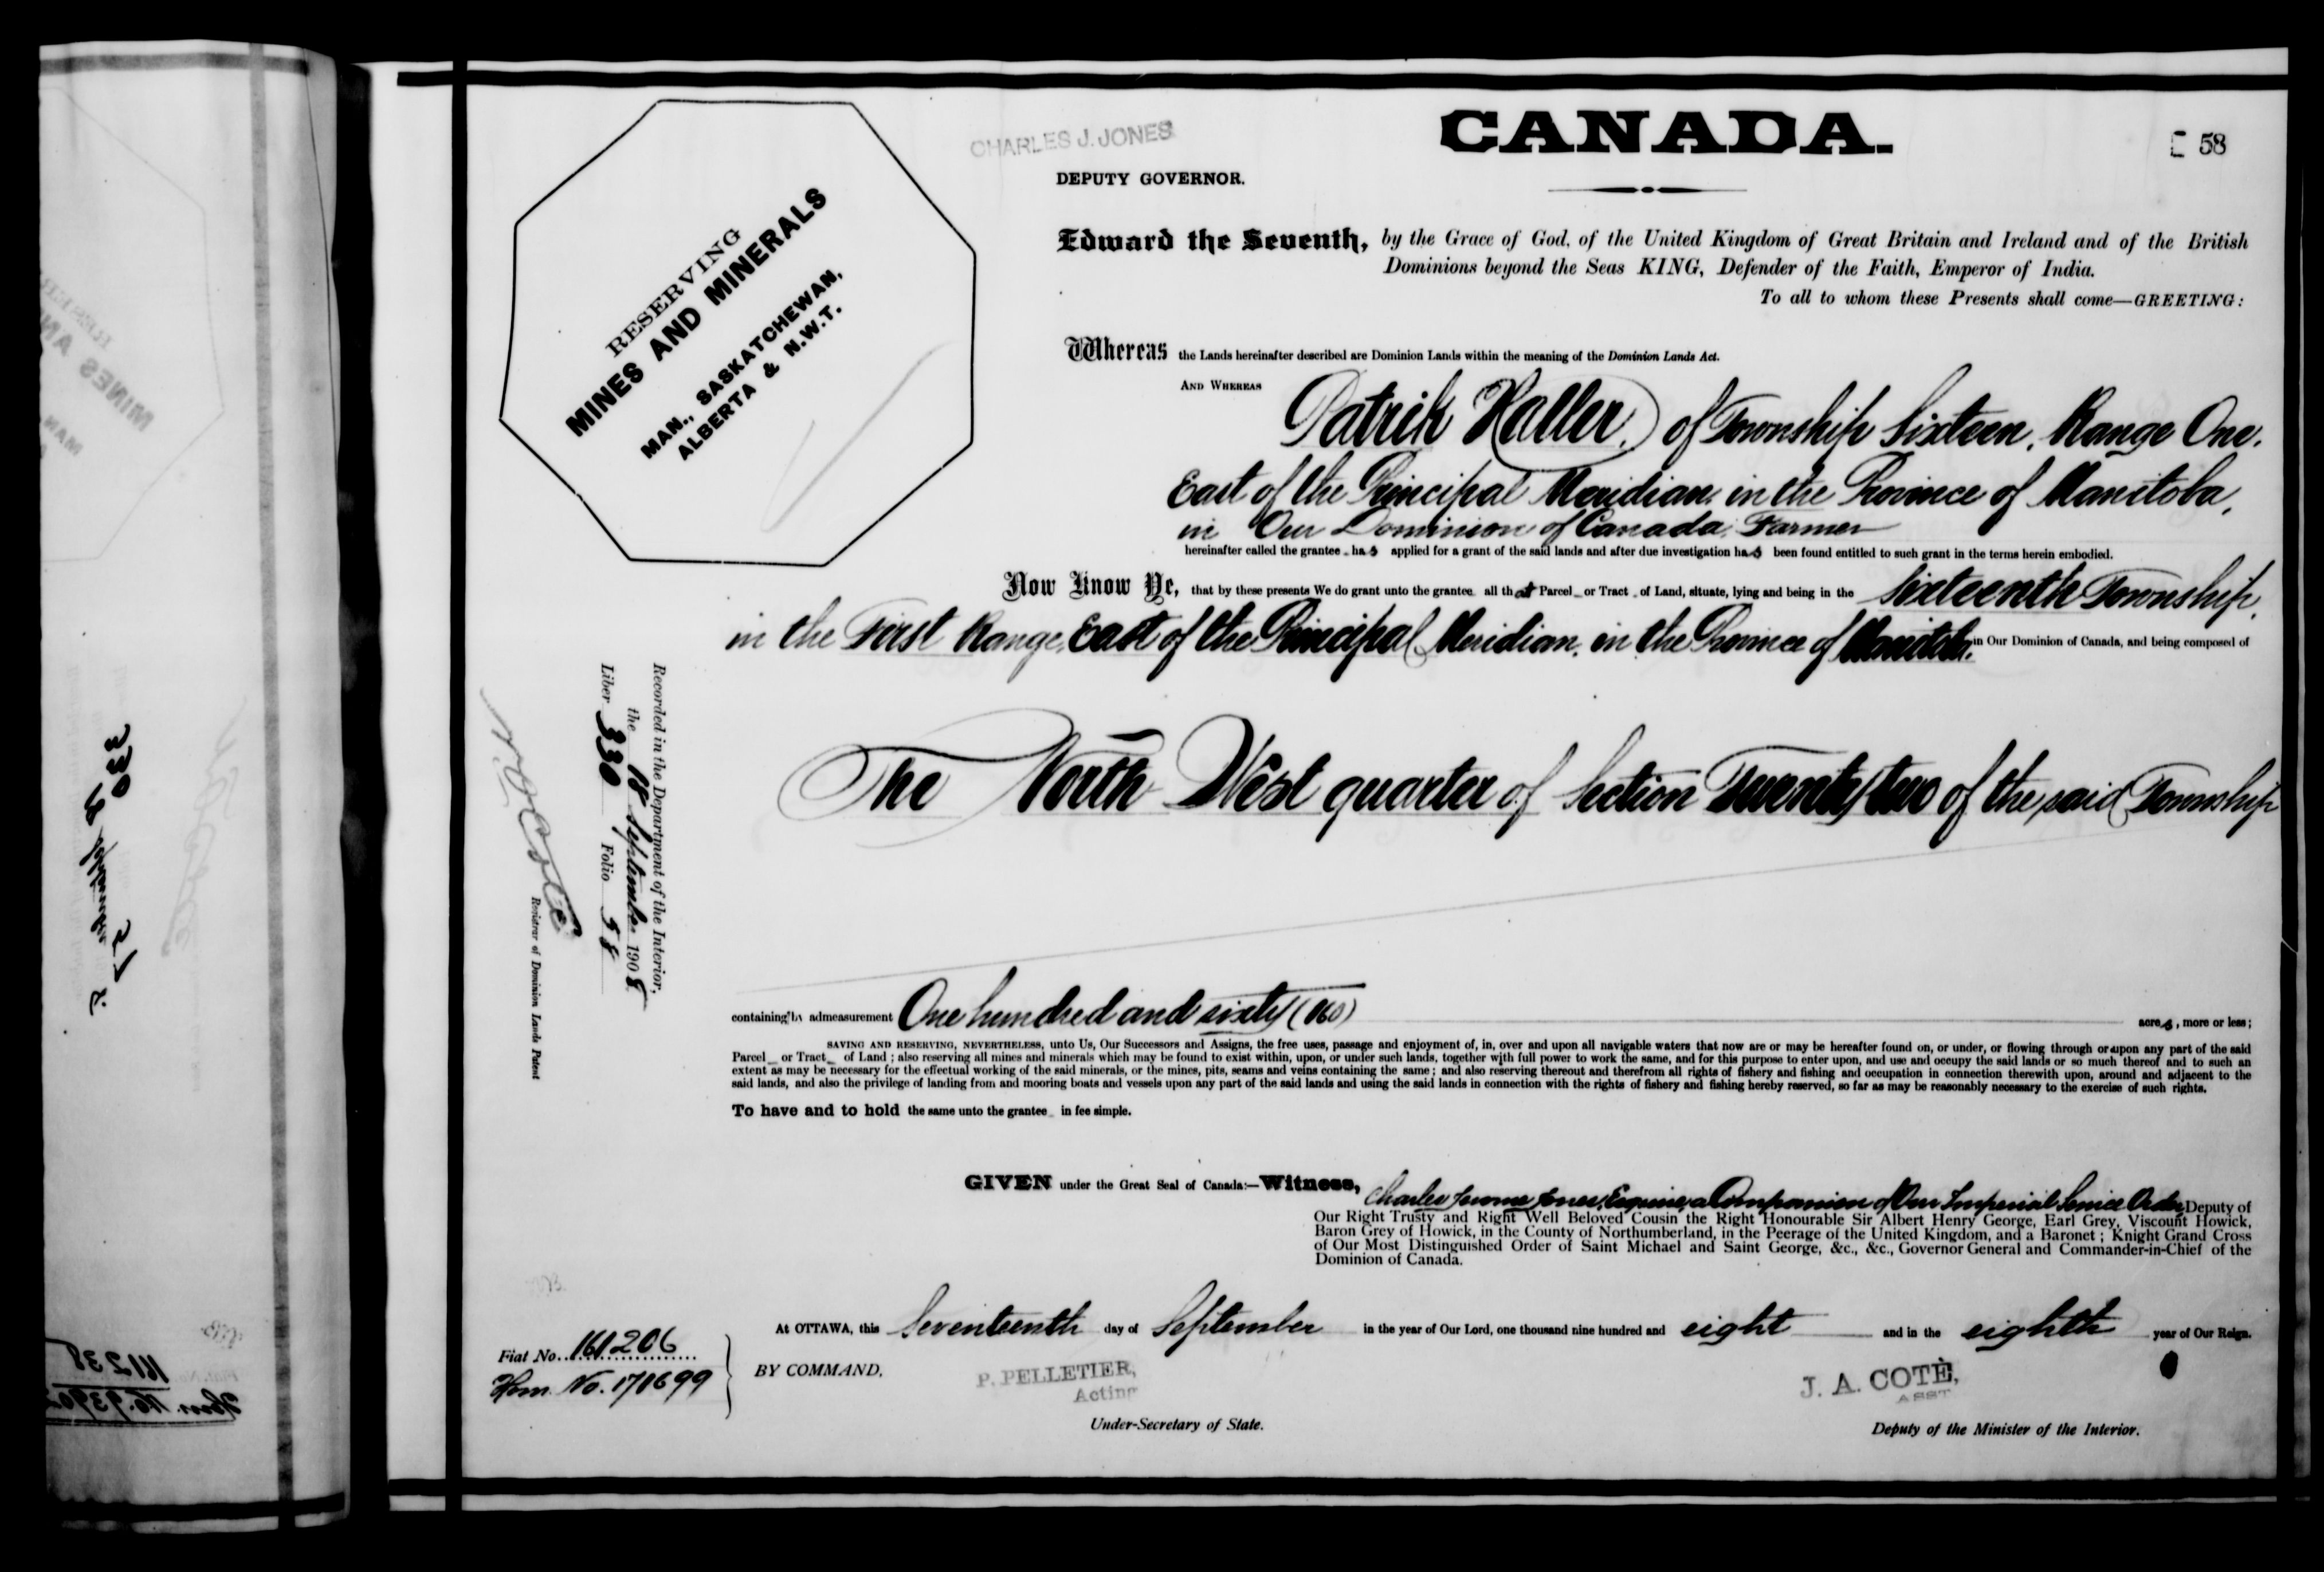 CANADA.
58
CHARLES J. JONES
DEPUTY GOVERNOR.
RESERVING
MINES AND MINERALS
MAN., SASKATCHEWAN,
ALBERTA & N.W.T.
Edward the Seventh, by the Grace of God, of the United Kingdom of Great Britain and Ireland and of the British
Dominions beyond the Seas KING, Defender of the Faith, Emperor of India.
To all to whom these Presents shall come—GREETING:
Whereas the Lands hereinafter described are Dominion Lands within the meaning of the Dominion Lands Act.
AND WHEREAS Patrik Haller, of Township Sixteen, Range One,
East of the Principal Meridian, in the Province of Manitoba,
in Our Dominion of Canada, Farmer
hereinafter called the grantee has applied for a grant of the said lands and after due investigation has been found entitled to such grant in the terms herein embodied.
Now Know Ye, that by these presents We do grant unto the grantee all that Parcel or Tract of Land, situate, lying and being in the Sixteenth Township,
in the First Range, East of the Principal Meridian, in the Province of Manitoba, in Our Dominion of Canada, and being composed of
The North West quarter of Section Twenty two of the said Township
Recorded in the Department of the Interior,
the 18 September 1908
Liber 330 Folio 58
N. O. Coté
Registrar of Dominion Lands Patent
containing by admeasurement One hundred and sixty (160) acres, more or less;
SAVING AND RESERVING, NEVERTHELESS, unto Us, Our Successors and Assigns, the free uses, passage and enjoyment of, in, over and upon all navigable waters that now are or may be hereafter found on, or under, or flowing through or upon any part of the said
Parcel or Tract of Land; also reserving all mines and minerals which may be found to exist within, upon, or under such lands, together with full power to work the same, and for this purpose to enter upon, and use and occupy the said lands or so much thereof and to such an
extent as may be necessary for the effectual working of the said minerals, or the mines, pits, seams and veins containing the same; and also reserving thereout and therefrom all rights of fishery and fishing and occupation in connection therewith upon, around and adjacent to the
said lands, and also the privilege of landing from and mooring boats and vessels upon any part of the said lands and using the said lands in connection with the rights of fishery and fishing hereby reserved, so far as may be reasonably necessary to the exercise of such rights.
To have and to hold the same unto the grantee in fee simple.
GIVEN under the Great Seal of Canada:—Witness, Charles Jerome Jones, Esquire, a Companion of Our Imperial Service Order, Deputy of
Our Right Trusty and Right Well Beloved Cousin the Right Honourable Sir Albert Henry George, Earl Grey, Viscount Howick,
Baron Grey of Howick, in the County of Northumberland, in the Peerage of the United Kingdom, and a Baronet; Knight Grand Cross
of Our Most Distinguished Order of Saint Michael and Saint George, &c., &c., Governor General and Commander-in-Chief of the
Dominion of Canada.
At OTTAWA, this Seventeenth day of September in the year of Our Lord, one thousand nine hundred and eight and in the eighth year of Our Reign.
Fiat No. 161206
Hom. No. 171699
BY COMMAND,
P. PELLETIER,
Acting
Under-Secretary of State.
J. A. COTÈ,
ASST
Deputy of the Minister of the Interior.